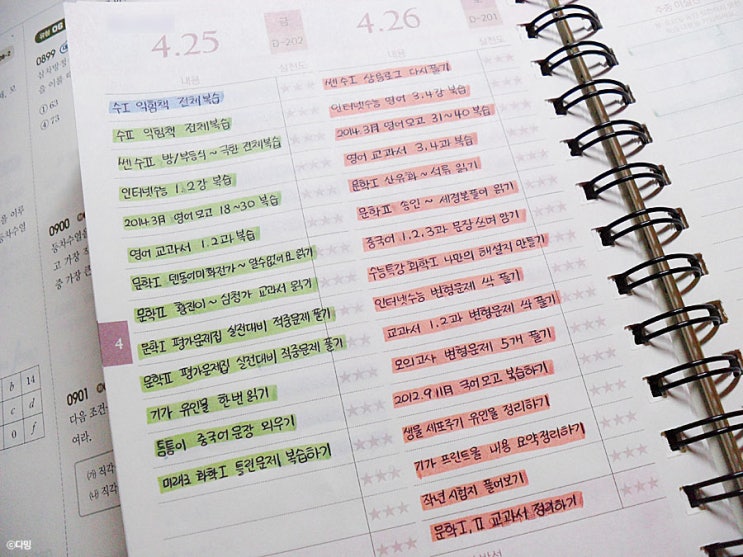 4.25
금
D-202
내용
실천도
수I 익힘책 전체복습
수II 익힘책 전체복습
쎈 수II 방/부등식~극한 전체복습
인터넷수능 1.2강 복습
2014.3月 영어모고 18~30 복습
영어 교과서 1.2과 복습
문학I 덴동어미화전가~알수없어요 읽기
문학II 황진이~심청가 교과서 읽기
문학I 평가문제집 실전대비 적중문제 풀기
문학II 평가문제집 실전대비 적중문제 풀기
기가 유인물 한번 읽기
틈틈이 중국어문장 외우기
미래로 화학I 틀린문제 복습하기
4
4.26
토
D-201
내용
실천도
쎈 수I 상용로그 다시풀기
인터넷수능 영어 3.4강 복습
2014.3月 영어모고 31~40 복습
영어 교과서 3.4과 복습
문학I 산유화~석류 읽기
문학II 송인~세정분풀이 읽기
중국어 1.2.3과 문장쓰며 암기
수능특강 화학I 나만의 해설지 만들기
인터넷수능 변형문제 싹 풀기
교과서 1.2과 변형문제 싹 풀기
모의고사 변형문제 5개 풀기
2012.9.11月 국어모고 복습하기
생물 세포주기 유인물 정리하기
기가 프린트물 내용 요약정리하기
작년 시험지 풀어보기
문학I,II 교과서 정리하기
유형 06
0899
① 63
④ 73
0900
등차수열
고 가장
중 가장 큰
0901
다음 조건
여라.
(가) 직각
(나) 직각
b 14
c d
0 f
©다밍